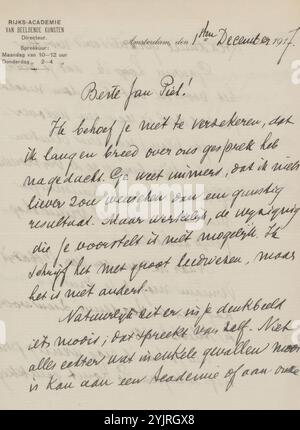 RIJKS-ACADEMIE
VAN BEELDENDE KUNSTEN
Directeur.
Spreekuur:
Maandag van 10–12 uur
Donderdag „ 2–4 „
Amsterdam, den 1sten December 1917
Beste Jan Piet!
Ik behoef je niet te verzekeren, dat
ik lang en breed over ons gesprek heb
nagedacht. Ge weet immers, dat ik niets
liever zou wenschen dan een gunstig
resultaat. Maar werkelijk, de wijziging
die je voorstelt is niet mogelijk. Ik
schrijf het met groot leedwezen, maar
het is niet anders.
Natuurlijk zit er in je denkbeeld
iets moois; dat spreekt van zelf. Niet
alles echter wat in enkele gevallen mooi
is kan aan een Academie of aan onze
alamy
Image ID: 2YJRGX8
www.alamy.com